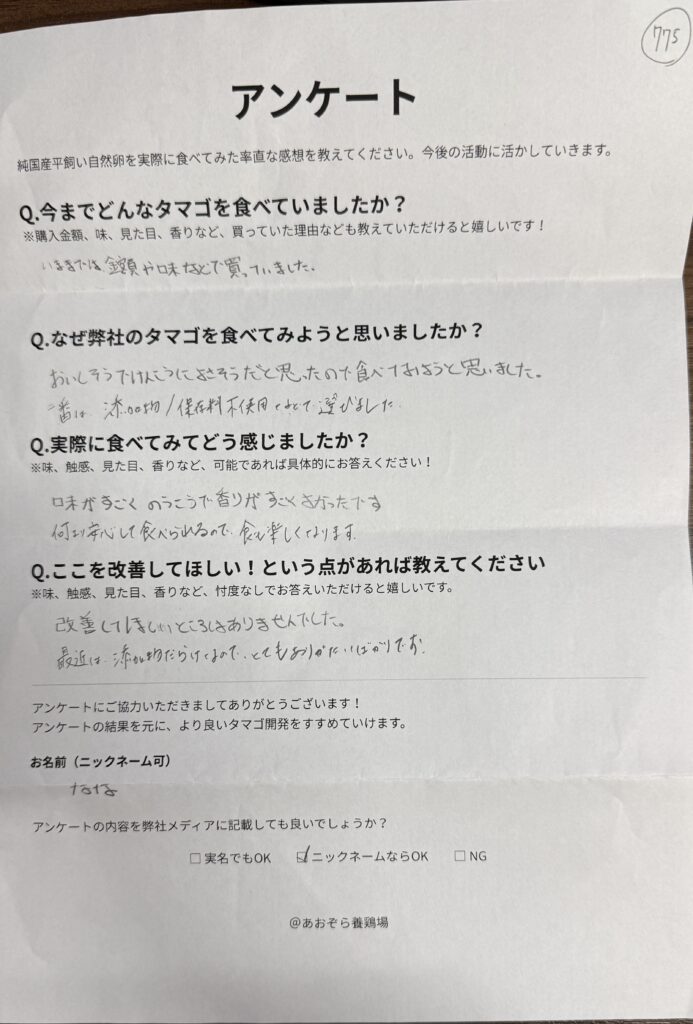 775
アンケート
純国産平飼い自然卵を実際に食べてみた率直な感想を教えてください。今後の活動に活かしていきます。
Q.今までどんなタマゴを食べていましたか？
※購入金額、味、見た目、香りなど、買っていた理由なども教えていただけると嬉しいです！
いままでは、金額や味などで買っていました。
Q.なぜ弊社のタマゴを食べてみようと思いましたか？
おいしそうでけんこうによさそうだと思ったので食べてみようと思いました。
一番は、添加物/保存料不使用なので選びました
Q.実際に食べてみてどう感じましたか？
※味、触感、見た目、香りなど、可能であれば具体的にお答えください！
味がすごくのうこうで香りがすごくよかったです
何より安心して食べられるので、食も楽しくなります。
Q.ここを改善してほしい！という点があれば教えてください
※味、触感、見た目、香りなど、忖度なしでお答えいただけると嬉しいです。
改善してほしいところはありませんでした。
最近は、添加物だらけなので、とてもありがたいばかりです。
アンケートにご協力いただきましてありがとうございます！
アンケートの結果を元に、より良いタマゴ開発をすすめていけます。
お名前（ニックネーム可）
なな
アンケートの内容を弊社メディアに記載しても良いでしょうか？
□ 実名でもOK ☑ ニックネームならOK □ NG
@あおぞら養鶏場